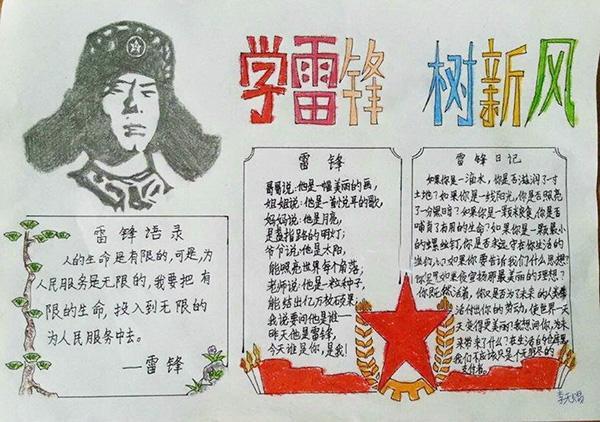 学雷锋 树新风
雷锋语录
人的生命是有限的,可是,为
人民服务是无限的,我要把有
限的生命,投入到无限的
为人民服务中去。
—雷锋
雷锋
哥哥说:他是一幅美丽的画,
姐姐说:他是一首悦耳的歌,
妈妈说:他是月亮,
是盏指路的明灯;
爷爷说:他是太阳,
能照亮世界每个角落;
老师说:他是一粒种子,
能结出亿万枚硕果;
我说要问他是谁—
昨天他是雷锋,
今天谁是你,是我!
雷锋日记
如果你是一滴水,你是否滋润了一寸
土地?如果你是一线阳光,你是否照亮
了一分黑暗?如果你是一颗粮食,你是否
哺育了有用的生命?如果你是一颗最小
的螺丝钉,你是否永远守在你生活的
如果你要告诉我们什么思想?
你是否
宣扬那最美丽的理想?
你既然活着,你又是否为了未来的人类
活付出你的劳动,使世界一天
天变得更美丽?我想问你,为未
来带来了什么?在生活的仓库里,
我们不应该只是个无穷尽的
支付者。